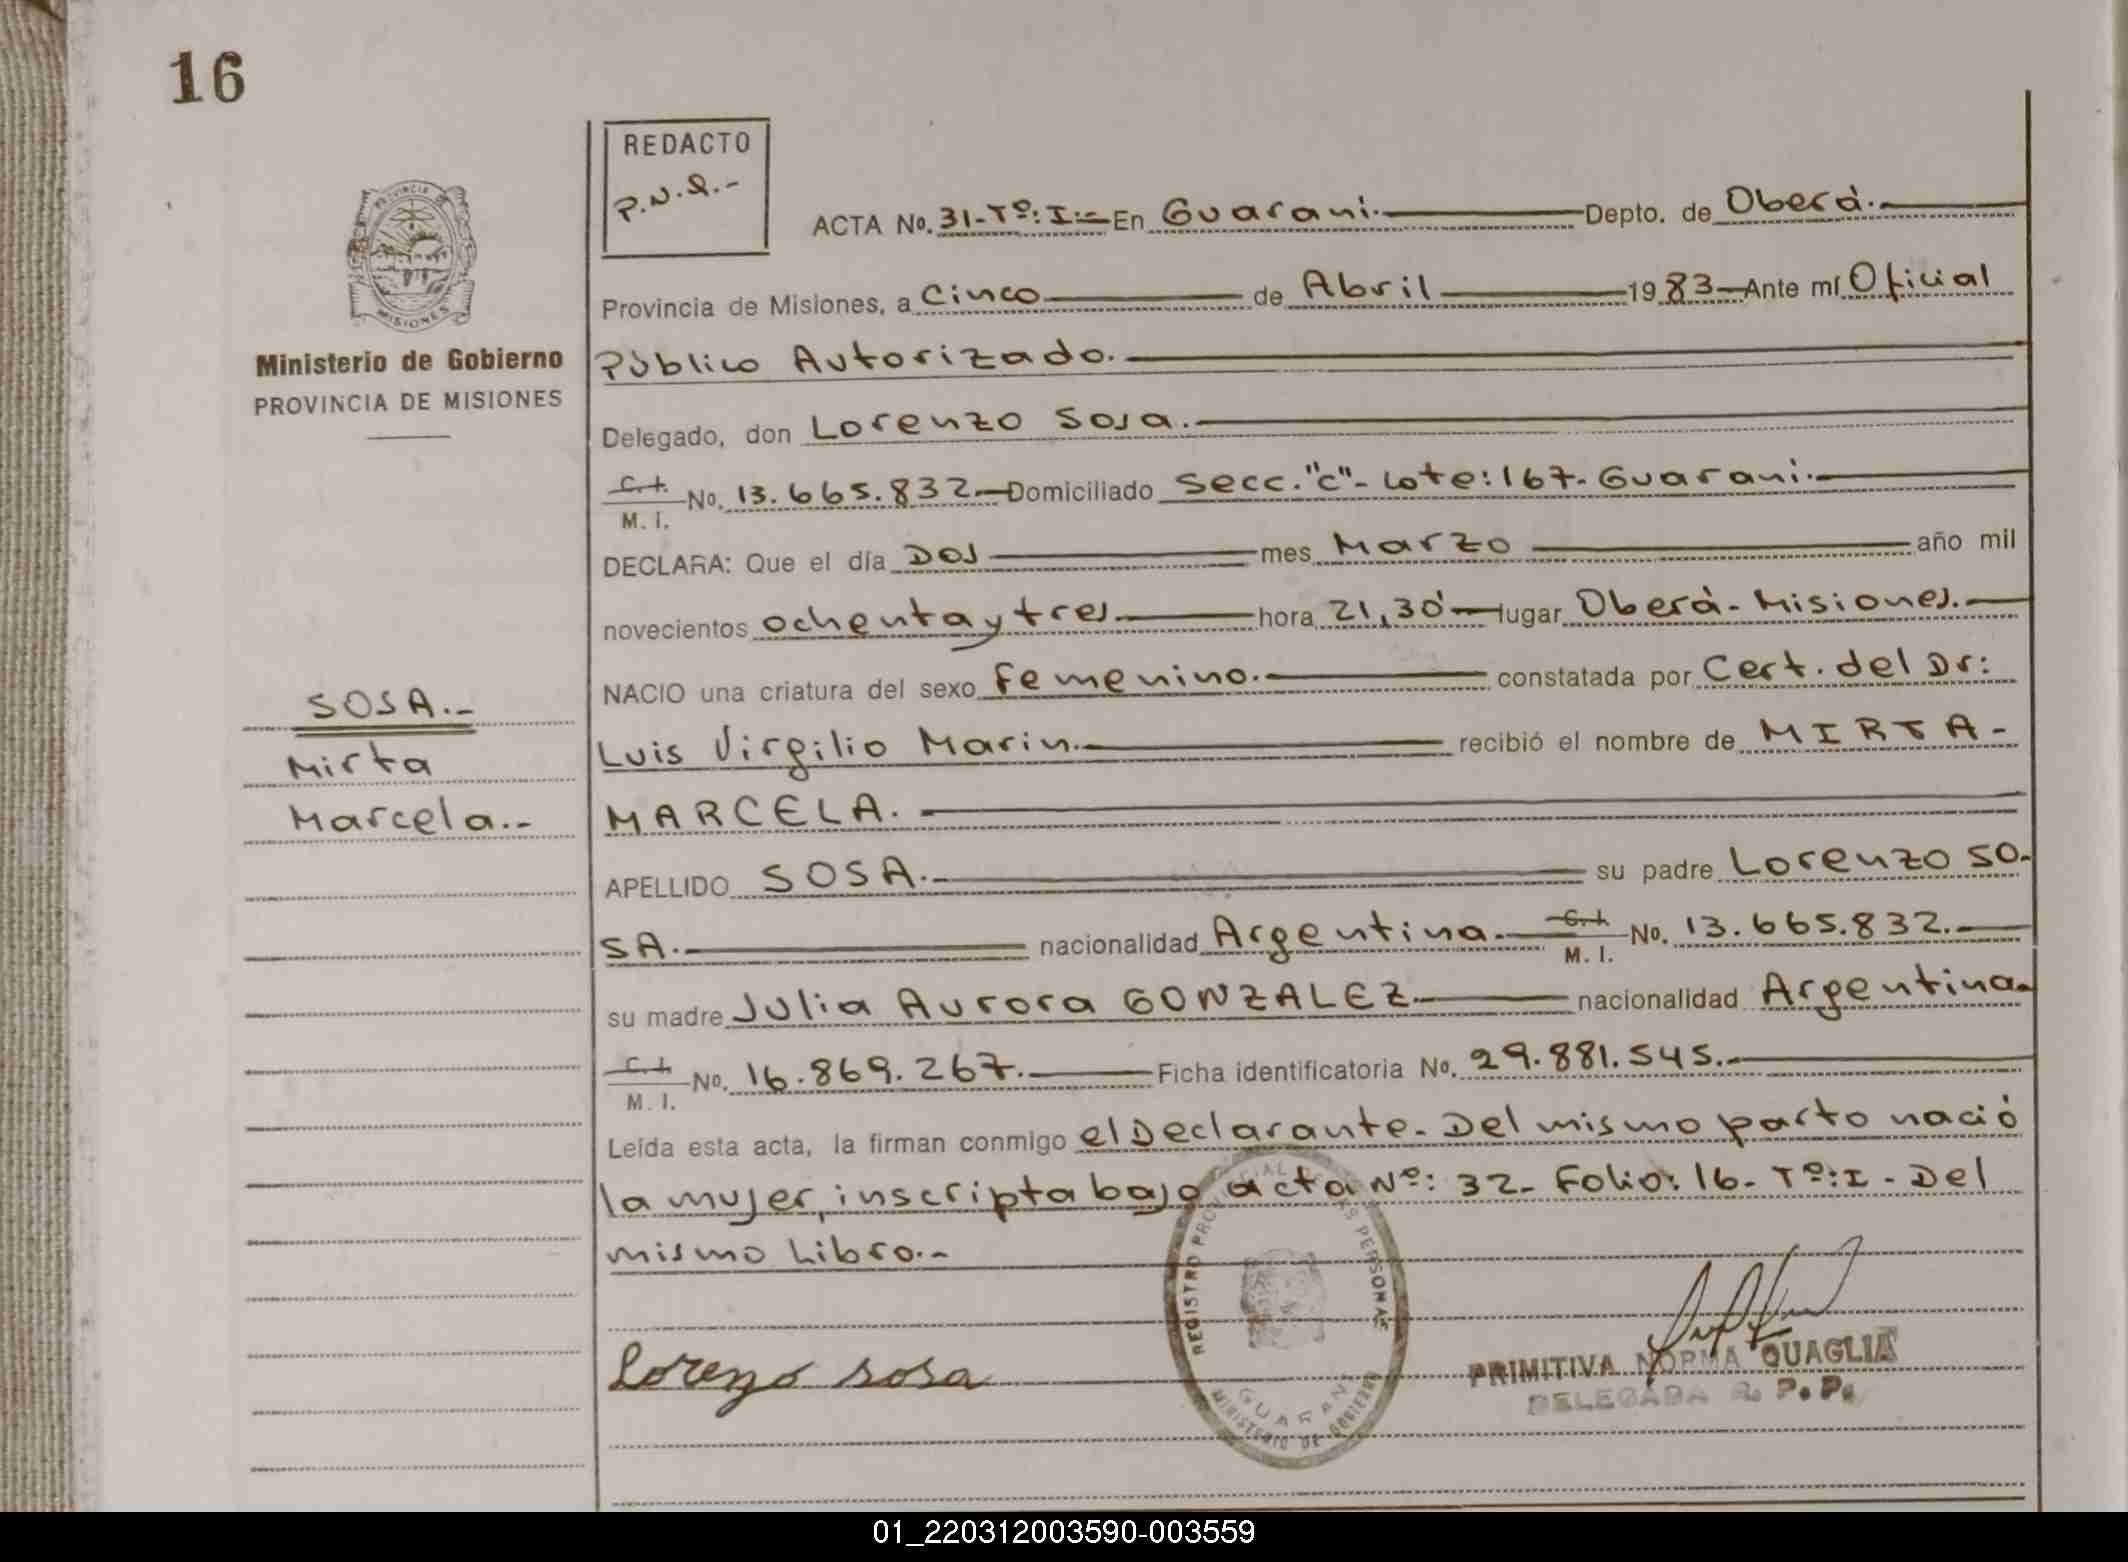 16
REDACTO
P.N.Q.-
ACTA No. 31-Tº:I:- En Guarani.- Depto. de Oberà.-
Provincia de Misiones, a Cinco de Abril 1983 Ante mí Oficial
Pùblico Autorizado.
Delegado, don Lorenzo Sosa.
C.I. No. 13.665.832 Domiciliado Secc."c"- Lote:167- Guarani.
M. I.
DECLARA: Que el día Dos mes Marzo año mil
novecientos ochenta y tres hora 21,30' lugar Oberà- Misiones.
NACIO una criatura del sexo femenino. constatada por Cert. del Dr:
Luis Virgilio Marin. recibió el nombre de MIRTA-
MARCELA.
APELLIDO SOSA. su padre Lorenzo SO-
SA. nacionalidad Argentina. C.I. No. 13.665.832.
M. I.
su madre Julia Aurora GONZALEZ nacionalidad Argentina
C.I. No. 16.869.267. Ficha identificatoria No. 29.881.545.
M. I.
Leída esta acta, la firman conmigo el Declarante- Del mismo parto naciò
la mujer, inscripta bajo acta Nº: 32- Folio: 16- Tº:I- Del
mismo Libro.-
Lorenzo sosa
PRIMITIVA NORMA QUAGLIA
DELEGADA R. P. P.
REGISTRO PROVINCIAL DE LAS PERSONAS
GUARANI
MINISTERIO DE GOBIERNO
PROVINCIA DE
MISIONES
Ministerio de Gobierno
PROVINCIA DE MISIONES
SOSA.-
Mirta
Marcela.-
01_220312003590-003559